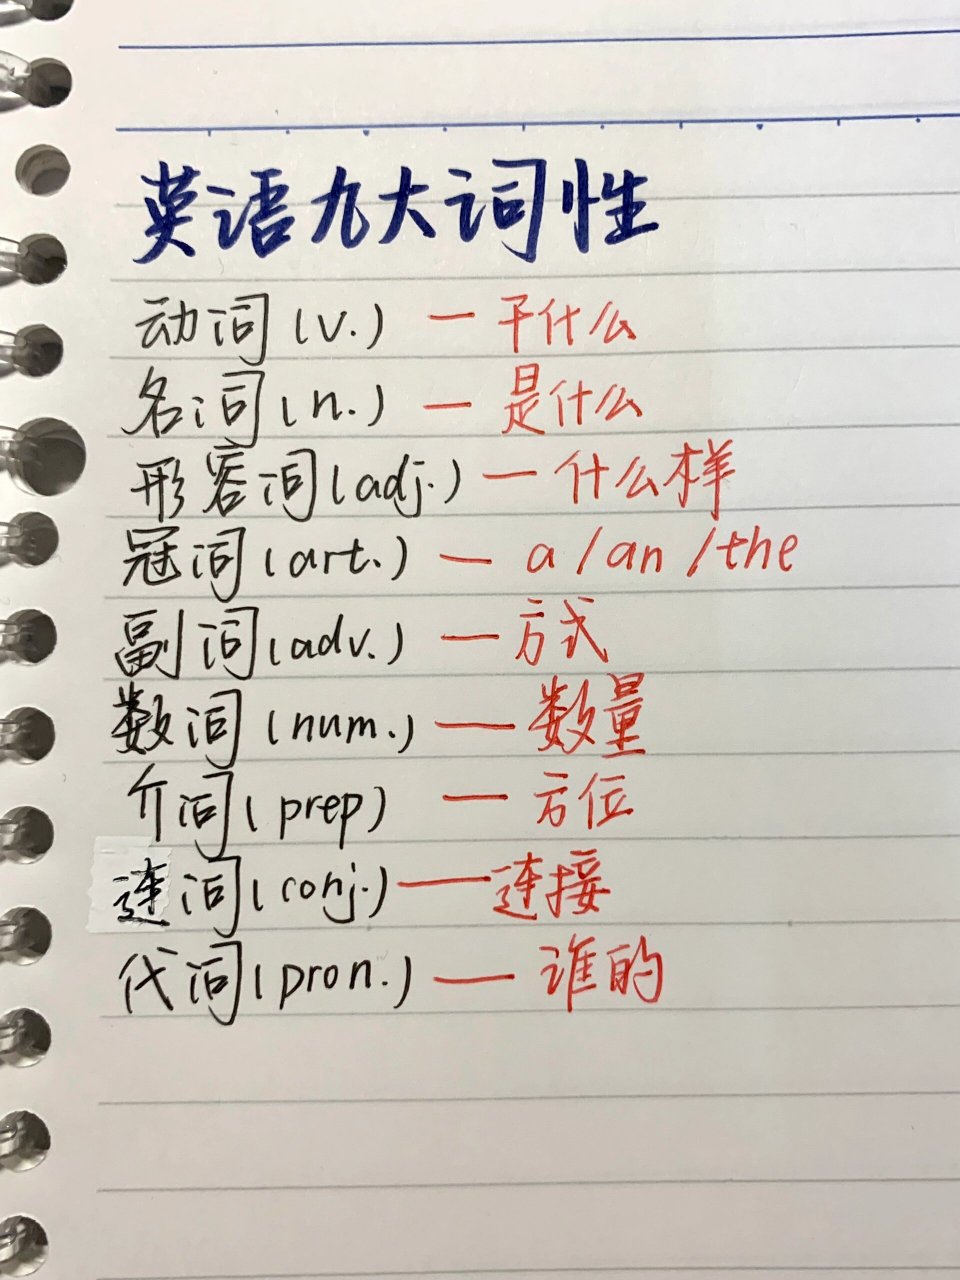 英语九大词性
动词(v.) — 干什么
名词(n.) — 是什么
形容词(adj.) — 什么样
冠词(art.) — a/an/the
副词(adv.) — 方式
数词(num.) — 数量
介词(prep) — 方位
连词(conj.) — 连接
代词(pron.) — 谁的